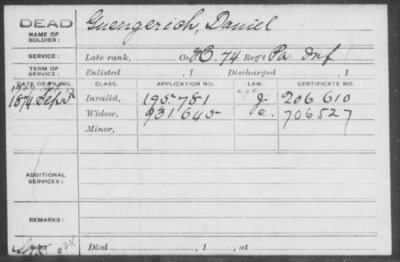 DEAD
NAME OF SOLDIER: Guengerich, Daniel
SERVICE: Late rank, Co. H. 74 Reg't Pa Inf
TERM OF SERVICE: Enlisted , 1 Discharged , 1
DATE OF FILING. CLASS. APPLICATION NO. LAW. CERTIFICATE NO.
1874 Sep Invalid, 195781 206610
Widow, 931645 706527
Minor,
ADDITIONAL SERVICES:
REMARKS:
Died , 1 , at